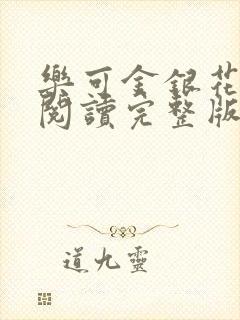 樂可金銀花
閱讀完整版
道九靈